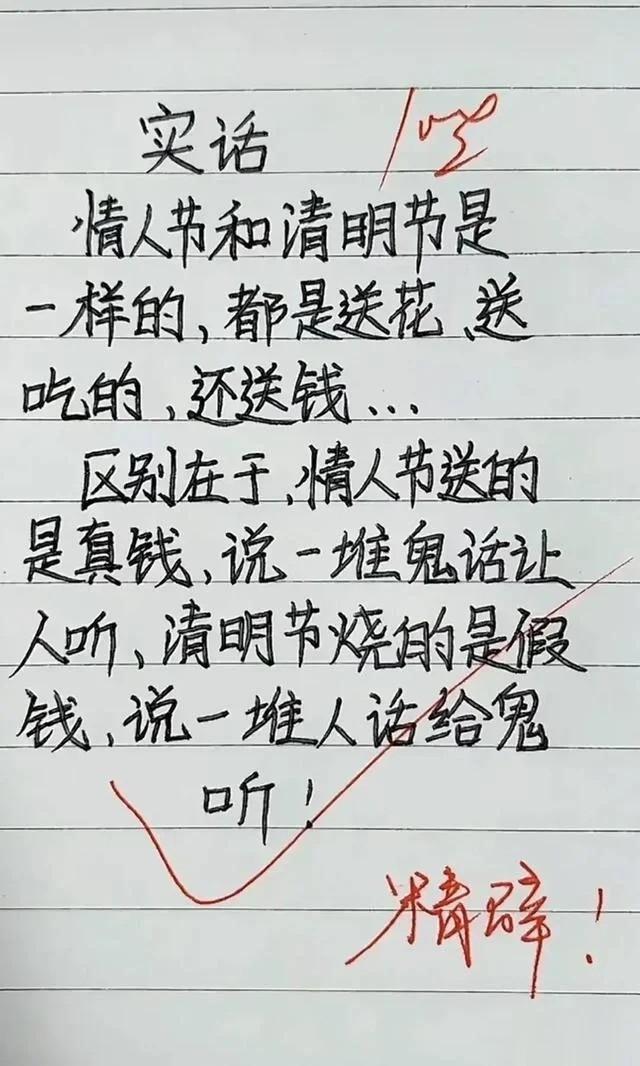 实话 100
情人节和清明节是
一样的,都是送花、送
吃的,还送钱...
区别在于,情人节送的
是真钱,说一堆鬼话让
人听、清明节烧的是假
钱,说一堆人话给鬼
听!
精辟!